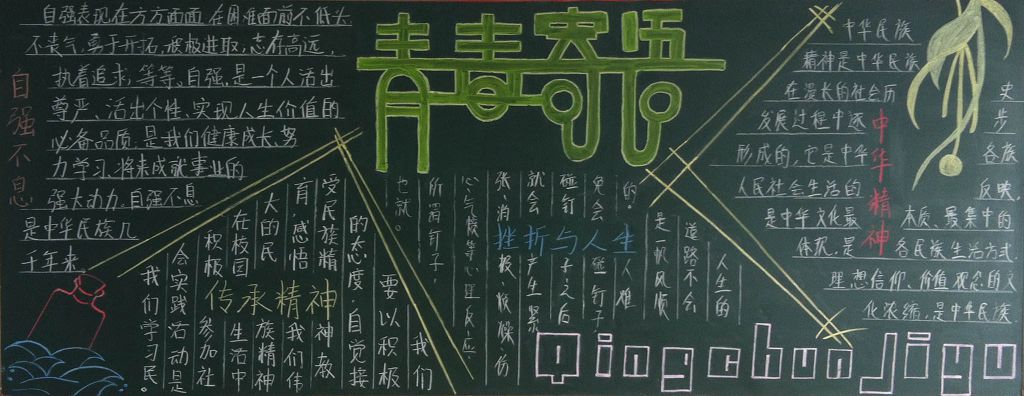 青春寄语
自强不息
自强表现在方方面面,在困难面前不低头
不丧气,勇于开拓,积极进取,志存高远,
执着追求,等等。自强,是一个人活出
尊严、活出个性、实现人生价值的
必备品质,是我们健康成长、努
力学习、将来成就事业的
强大动力。自强不息
是中华民族几
千年来
传承精神
我们
要以积极
的态度,自觉接
受民族精神教
育感悟我们伟
大的民族精神
在校园生活中
积极参加社
会实践活动是
我们学习民。
挫折与人生
人生的
道路不会
是一帆风顺
的。人难
免会碰钉子
碰钉子之后
就会产生紧
张、消极、烦燥伤
心、气馁等心里反应
所谓钉子,
也就。
中华精神
中华民族
精神是中华民族
在漫长的社会历史
发展过程中逐步
形成的,它是中华各族
人民社会生活的反映,
是中华文化最本质、最集中的
体现,是各民族生活方式
理想信仰、价值观念的文
化浓缩,是中华民族
Qingchun Jiyu